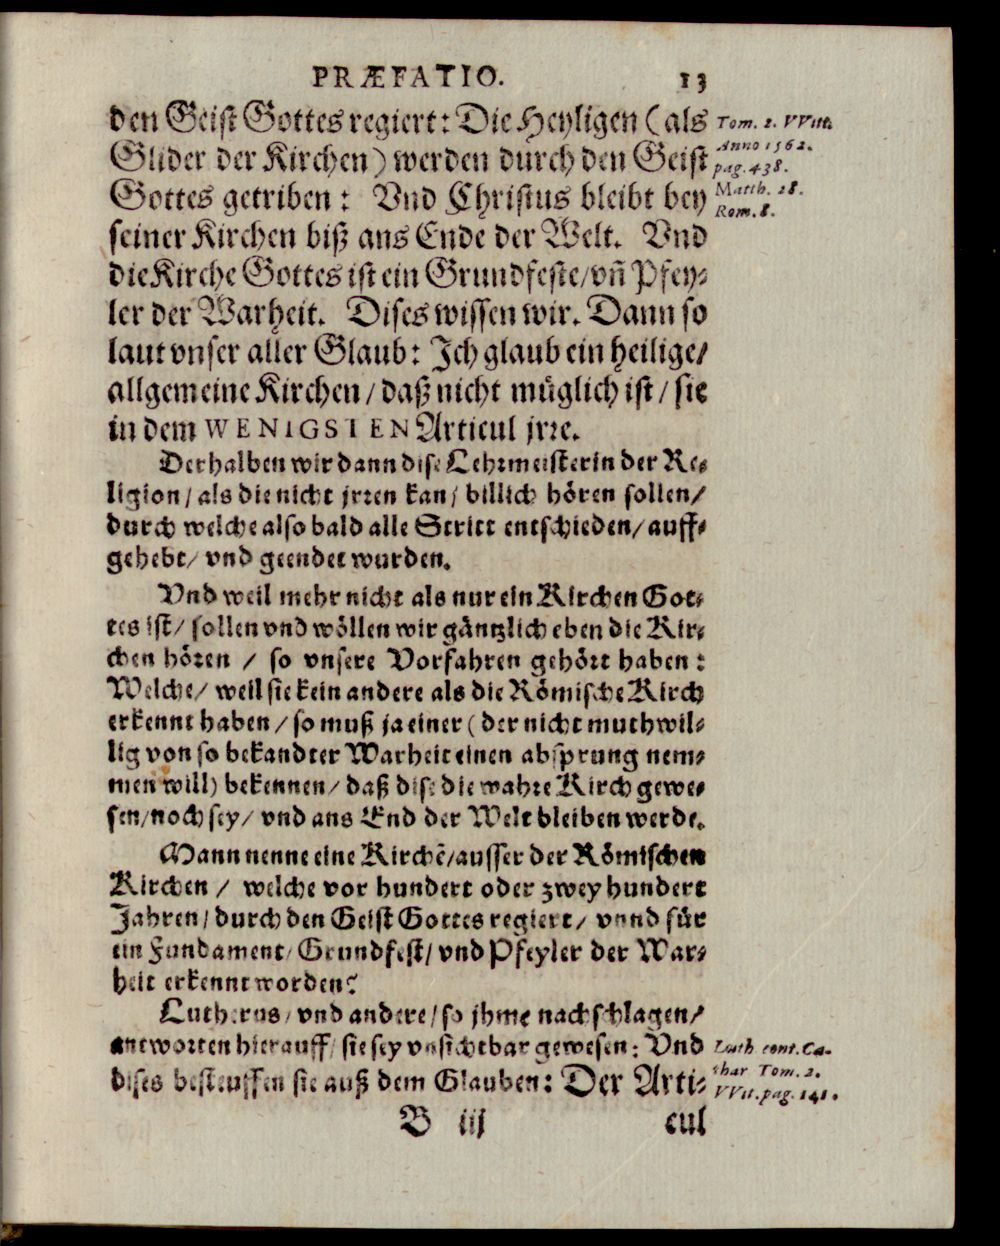 PRÆFATIO. 13
den Geist Gottes regiert: Die Heyligen (als
Glider der Kirchen) werden durch den Geist
Gottes getriben: Vnd Christus bleibt bey
seiner Kirchen biß ans Ende der Welt. Vnd
die Kirche Gottes ist ein Grundfeste/vñ Pfey⸗
ler der Warheit. Dises wissen wir. Dann so
laut vnser aller Glaub: Ich glaub ein heilige/
allgemeine Kirchen/daß nicht müglich ist/sie
in dem WENIGSTEN Articul jrre.
Derhalben wir dann dise Lehrmeisterin der Re⸗
ligion/als die nicht jrren kan/billich hören sollen/
durch welche also bald alle Stritt entschieden/auff⸗
gehebt/vnd geendet wurden.
Vnd weil mehr nicht als nur ein Kirchen Got⸗
tes ist/sollen vnd wöllen wir gäntzlich eben die Kir⸗
chen hören/so vnsere Vorfahren gehört haben:
Welche/weil sie kein andere als die Römische Kirch
erkennt haben/so muß ja einer (der nicht muthwil⸗
lig von so bekandter Warheit einen absprung nem⸗
men will) bekennen/daß dise die wahre Kirch gewe⸗
sen/noch sey/vnd ans End der Welt bleiben werde.
Mann nenne eine Kirchē/ausser der Römischen
Kirchen/welche vor hundert oder zwey hundert
Jahren/durch den Geist Gottes regiert/vnnd für
ein Fundament/Grundfest/vnd Pfeyler der War⸗
heit erkennt worden?
Lutherus/vnd andere/so jhme nachschlagen/
antworten hierauff/sie sey vnsichtbar gewesen: Vnd
dises besteuffen sie auß dem Glauben: Der Arti⸗
B iij cul
Tom. 2. VVitt.
Anno 1562.
pag. 438.
Matth. 28.
Rom. 8.
Luth cont. Ca-
thar Tom. 2.
VVit. pag. 141.